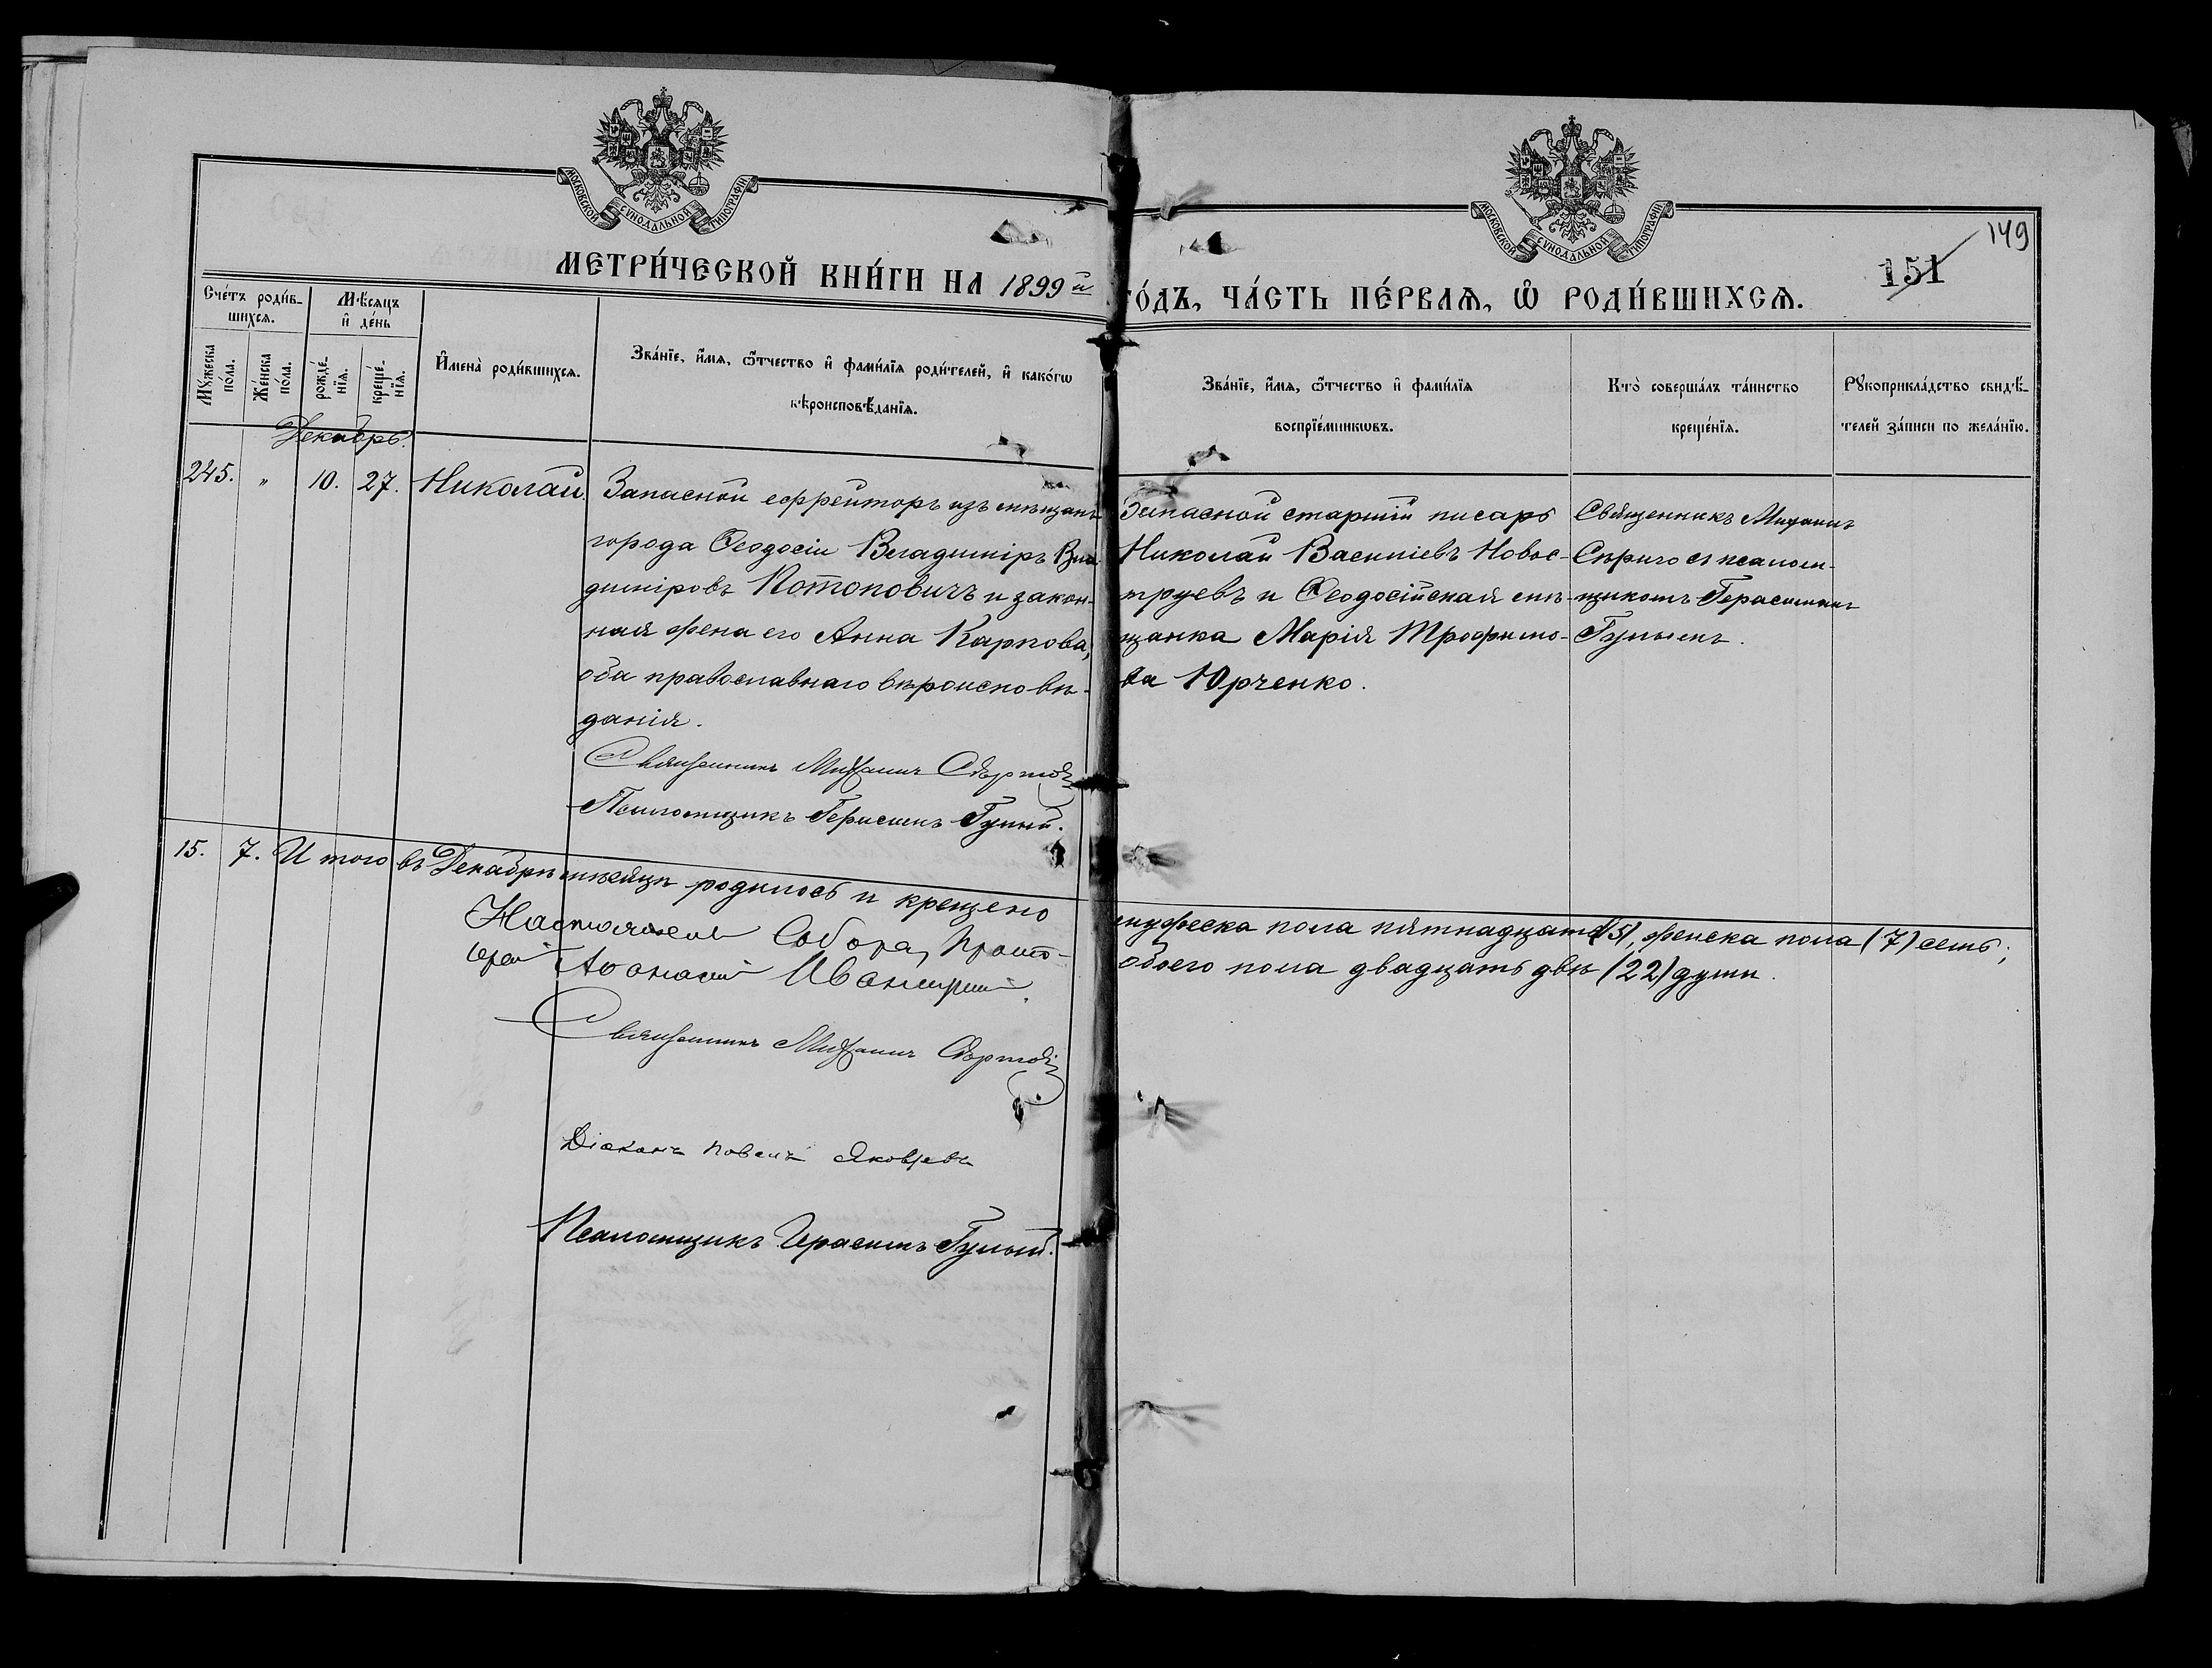 МОСКОВСКОЙ СѴНОДАЛЬНОЙ ТИПОГРАФІИ
МОСКОВСКОЙ СѴНОДАЛЬНОЙ ТИПОГРАФІИ
149
151
МЕТРИ́ЧЕСКОЙ КНИ́ГИ НА 1899й
ГО́ДЪ, ЧА́СТЬ ПЕ́РВАѦ, Ѡ҆ РОДИ́ВШИХСѦ.
Сче́тъ роди́в-
шихсѧ.
Мѣ́сѧцъ
и҆ де́нь
Мꙋ́жеска
по́ла.
Же́нска
по́ла.
рожде́-
нїѧ.
креще́-
нїѧ.
И҆мена̀ роди́вшихсѧ.
Зва́нїе, и҆́мѧ, ѻ҆́тчество и҆ фами́лїѧ роди́телей, и҆ како́гѡ
вѣроисповѣ́данїѧ.
Зва́нїе, и҆́мѧ, ѻ҆́тчество и҆ фами́лїѧ
воспрїе́мникѡвъ.
Кто̀ соверша́лъ та́инство
креще́нїѧ.
Рꙋкоприкла́дство свидѣ́-
телей за́писи по жела́нїю.
Декабрь.
245. " 10. 27. Николай.
Запасной ефрейторъ изъ мѣщанъ
города Ѳеодосіи Владиміръ Вла-
диміровъ Потоповичъ и закон-
ная жена его Анна Карпова,
оба православнаго вѣроисповѣ-
данія.
Священникъ Михаилъ
Псаломщикъ Герасимъ Гулый.
Запасной старшій писарь
Николай Василіевъ Новос-
труевъ и Ѳеодосійская мѣ-
щанка Марія Трофимо-
ва Юрченко.
Священникъ Михаилъ
съ псалом-
щикомъ Герасимомъ
Гулымъ.
15. 7. Итого въ Декабрѣ мѣсяцѣ родилось и крещено
мужеска пола пятнадцать (15), женска пола (7) семь;
обоего пола двадцать двѣ (22) души.
Настоятель Собора, Прото-
іерей
Священникъ Михаилъ
Діаконъ Павелъ Яковлевъ
Псаломщикъ Герасимъ Гулый.